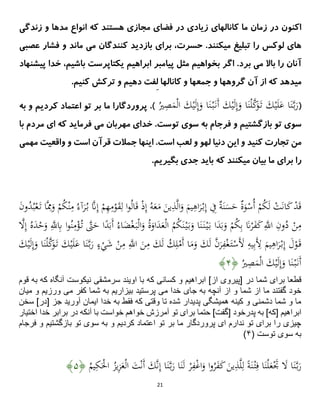 اکنون در زمان ما کانالهای زیادی در فضای مجازی هستند که انواع مدها و زندگی
های لوکس را تبلیغ میکنند. حسرت، برای بازدید کنندگان می ماند و فشار عصبی
آنان را بالا می برد. اگر بخواهیم مثل پیامبر ابراهیم یکتاپرست باشیم، خدا پیشنهاد
میدهد که از آن گروهها و جمعها و کانالها لفت دهیم و ترکش کنیم.
(رَبَّنَا عَلَيْكَ تَوَكَّلْنَا وَإِلَيْكَ أَنَبْنَا وَإِلَيْكَ الْمَصِيرُ ). پروردگارا ما بر تو اعتماد کردیم و به
سوی تو بازگشتیم و فرجام به سوی توست. خدای مهربان می فرماید که ای مردم با
من تجارت کنید و این دنیا لهو و لعب است. اینها جملات قرآن است و واقعیت مهمی
را برای ما بیان میکنند که باید جدی بگیریم.
قَدْ كَانَتْ لَكُمْ أُسْوَةٌ حَسَنَةٌ فِي إِبْرَاهِيمَ وَالَّذِينَ مَعَهُ إِذْ قَالُوا لِقَوْمِهِمْ إِنَّا بُرَآءُ مِنْكُمْ وَمِمَّا تَعْبُدُونَ
مِنْ دُونِ اللَّهِ كَفَرْنَا بِكُمْ وَبَدَا بَيْنَنَا وَبَيْنَكُمُ الْعَدَاوَةُ وَالْبَغْضَاءُ أَبَدًا حَتَّى تُؤْمِنُوا بِاللَّهِ وَحْدَهُ إِلَّا
قَوْلَ إِبْرَاهِيمَ لِأَبِيهِ لَأَسْتَغْفِرَنَّ لَكَ وَمَا أَمْلِكُ لَكَ مِنَ اللَّهِ مِنْ شَيْءٍ رَبَّنَا عَلَيْكَ تَوَكَّلْنَا وَإِلَيْكَ
أَنَبْنَا وَإِلَيْكَ الْمَصِيرُ ﴿۴﴾
قطعا برای شما در [پیروی از] ابراهیم و کسانی که با اویند سرمشقی نیکوست آنگاه که به قوم
خود گفتند ما از شما و از آنچه به جای خدا می پرستید بیزاریم به شما کفر می ورزیم و میان
ما و شما دشمنی و کینه همیشگی پدیدار شده تا وقتی که فقط به خدا ایمان آورید جز [در] سخن
ابراهیم [که] به پدرخود [گفت] حتما برای تو آمرزش خواهم خواست با آنکه در برابر خدا اختیار
چیزی را برای تو ندارم ای پروردگار ما بر تو اعتماد کردیم و به سوی تو بازگشتیم و فرجام
به سوی توست (۴)
رَبَّنَا لَا تَجْعَلْنَا فِتْنَةً لِلَّذِينَ كَفَرُوا وَاغْفِرْ لَنَا رَبَّنَا إِنَّكَ أَنْتَ الْعَزِيزُ الْحَكِيمُ ﴿۵﴾
21